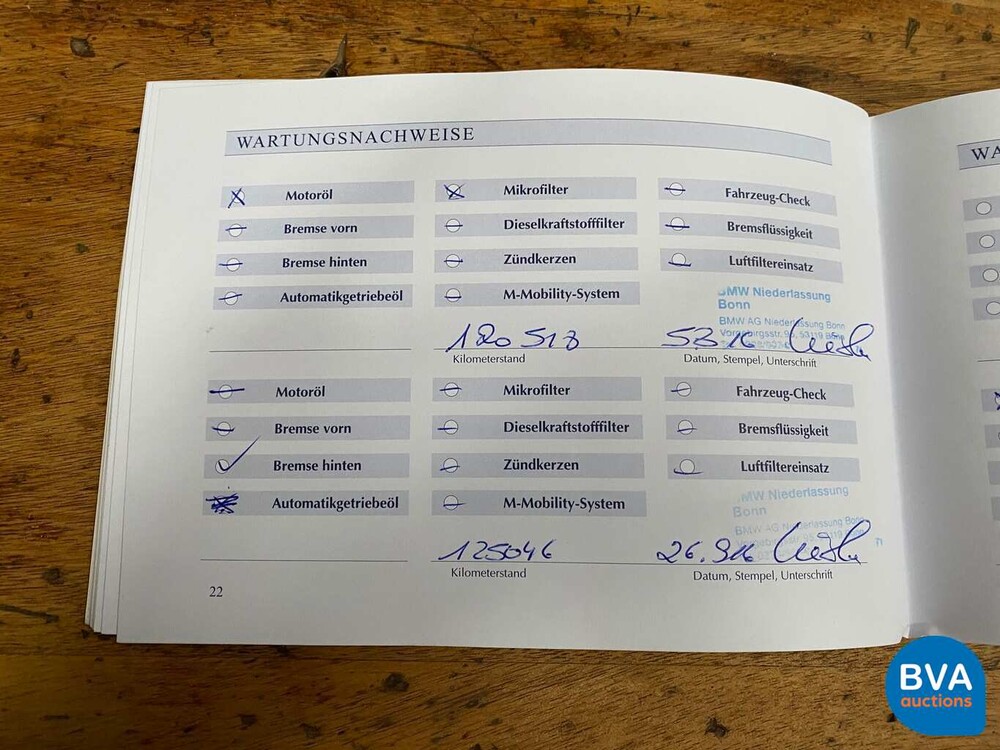 WARTUNGSNACHWEISE
WA
Motoröl Mikrofilter Fahrzeug-Check
Bremse vorn Dieselkraftstofffilter Bremsflüssigkeit
Bremse hinten Zündkerzen Luftfiltereinsatz
Automatikgetriebeöl M-Mobility-System
BMW Niederlassung
Bonn
BMW AG Niederlassung Bonn
53119 Bonn
120518
Kilometerstand Datum, Stempel, Unterschrift
Motoröl Mikrofilter Fahrzeug-Check
Bremse vorn Dieselkraftstofffilter Bremsflüssigkeit
Bremse hinten Zündkerzen Luftfiltereinsatz
Automatikgetriebeöl M-Mobility-System
MW Niederlassung
Bonn
BMW AG Niederlassung Bonn
125046 26.916
Kilometerstand Datum, Stempel, Unterschrift
22
BVA
auctions